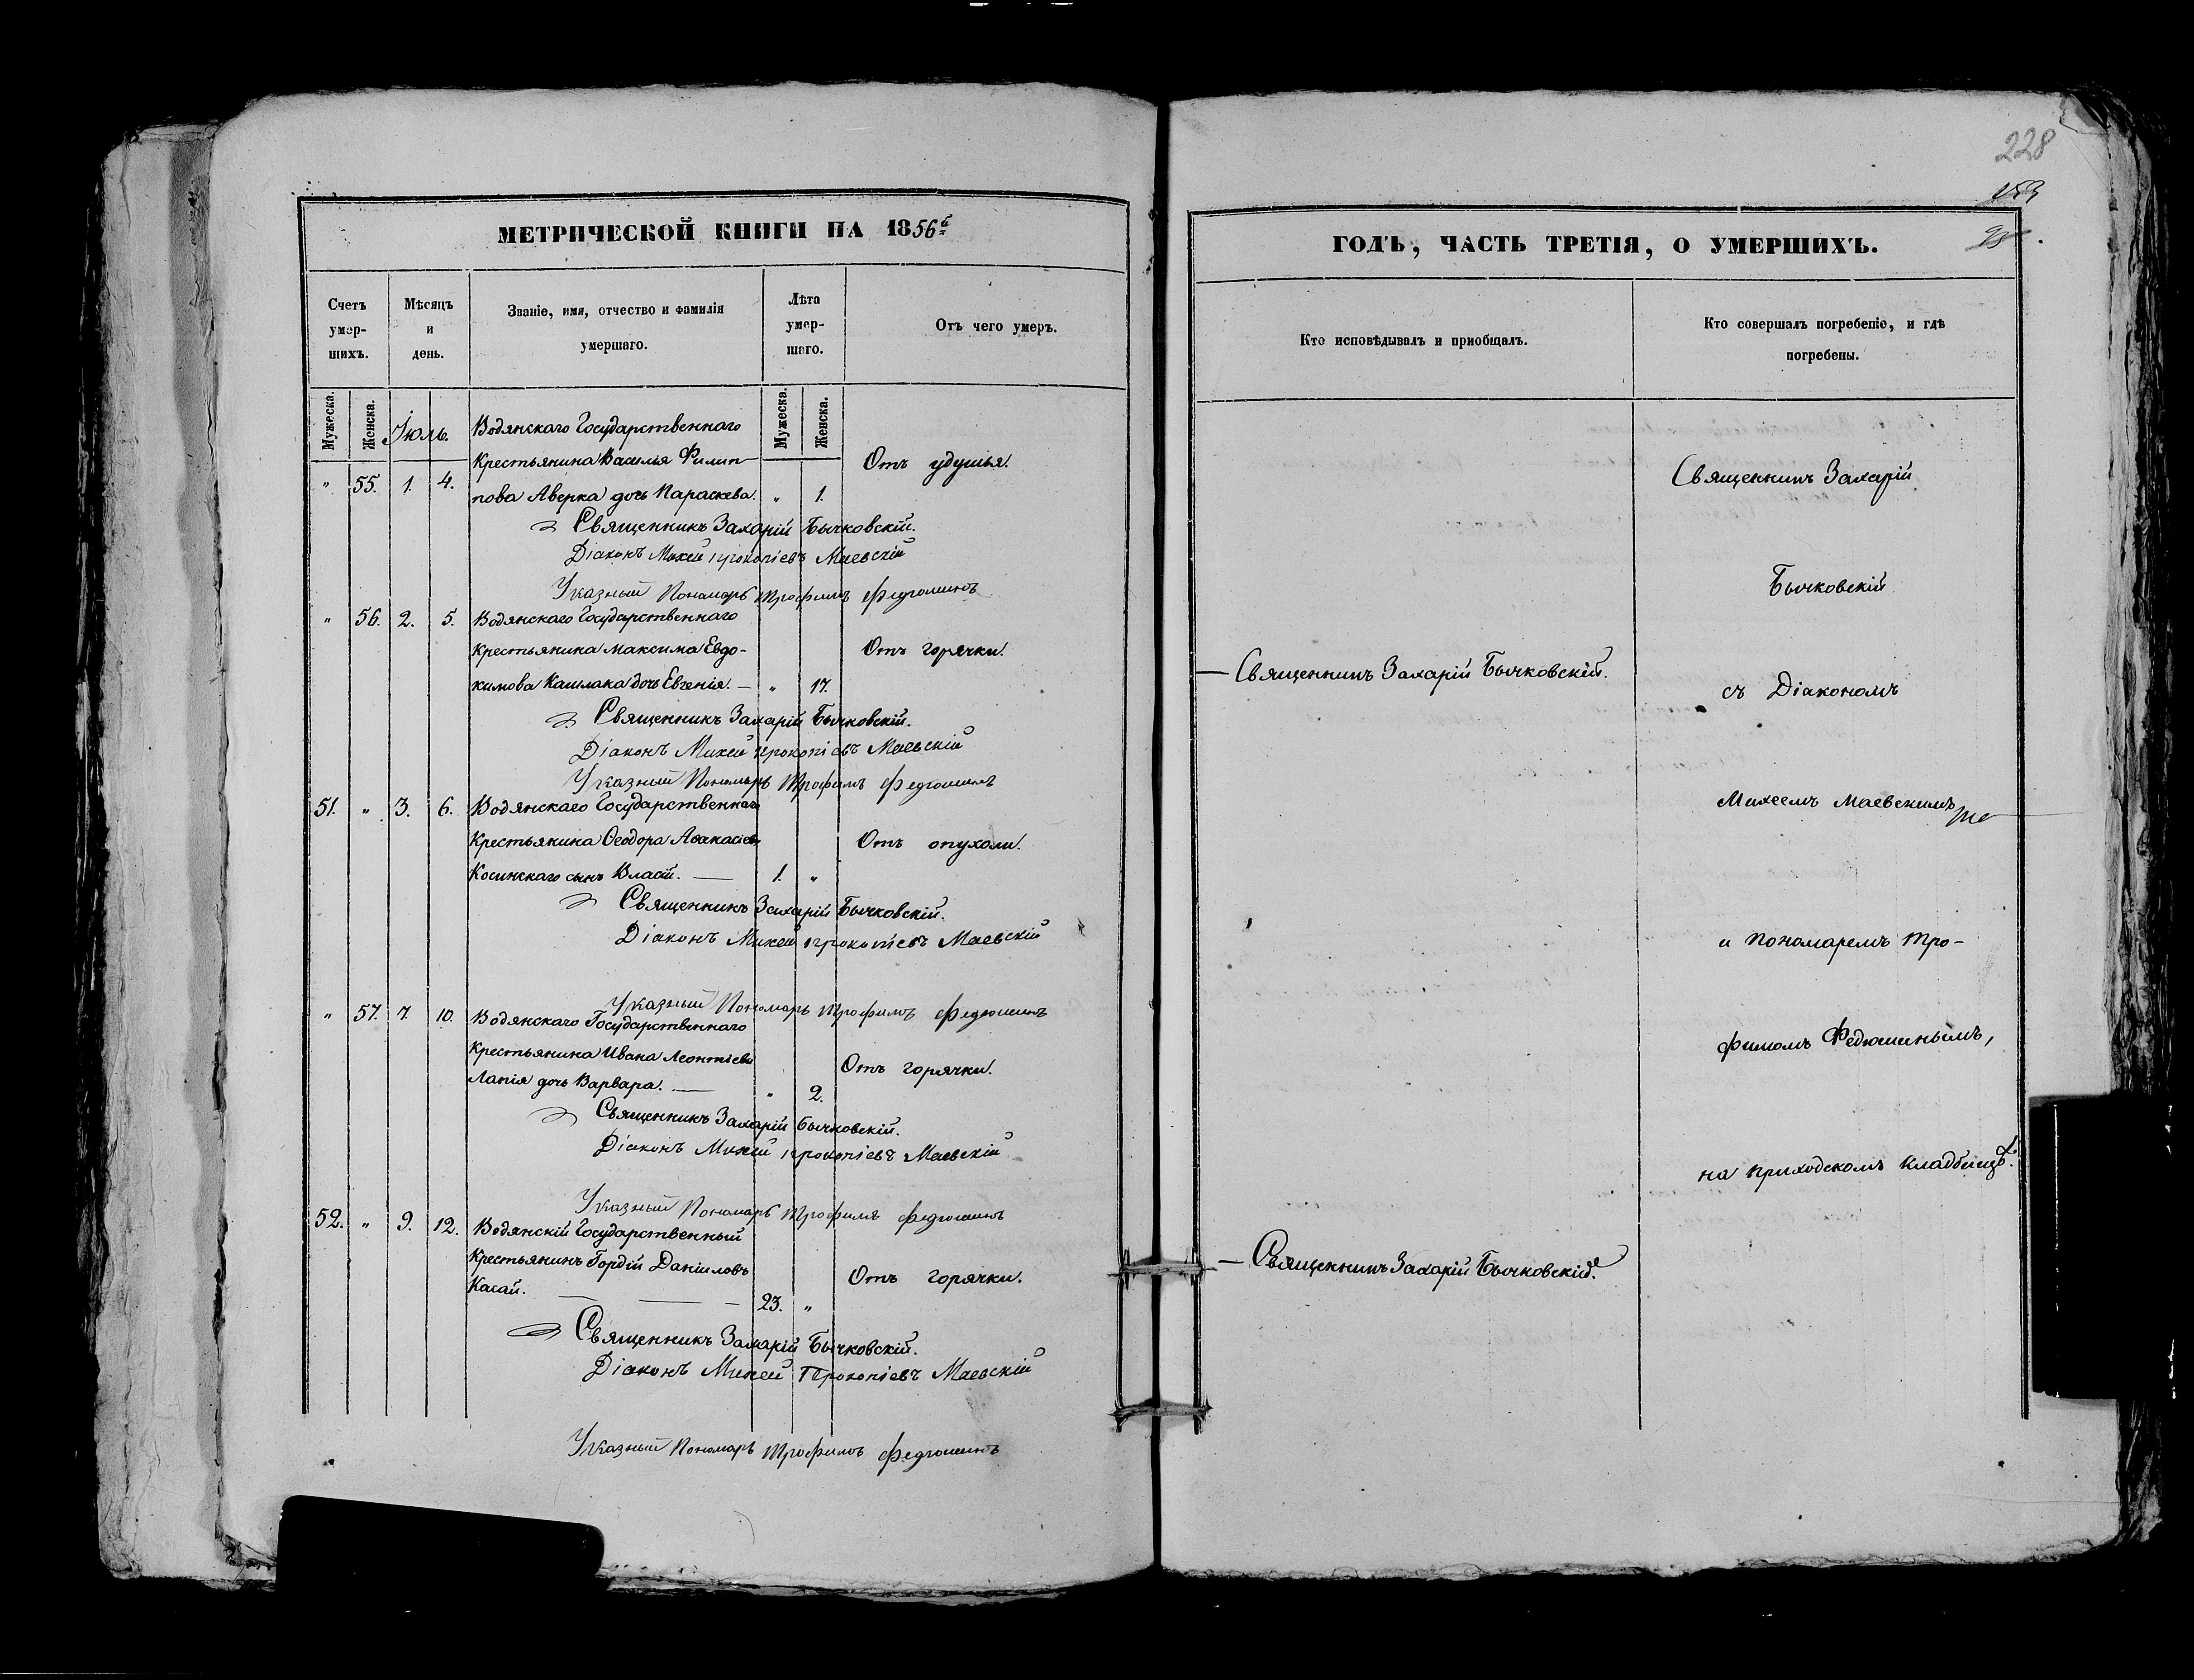 МЕТРИЧЕСКОЙ КНИГИ НА 1856й
Счетъ умер-шихъ.
Мѣсяцъ и день.
Званіе, имя, отчество и фамилія умершаго.
Лѣта умер-шаго.
Отъ чего умеръ.
Мужеска.
Женска.
Іюль.
Мужеска.
Женска.
Водянскаго Государственнаго
Крестьянина Василья Филип-
" 55. 1. 4. пова Аверка дочь Параскева. " 1. Отъ удушья.
Священникъ Захарій Бычковскій.
Діаконъ Михей Прокопіевъ Маевскій
Указный Пономарь Трофимъ Федюшинъ
" 56. 2. 5. Водянскаго Государственнаго
Крестьянина Максима Евдо- Отъ горячки.
кимова Кашлака дочь Евгенія. — " 17.
Священникъ Захарій Бычковскій.
Діаконъ Михей Прокопіевъ Маевскій
Указный Пономарь Трофимъ Федюшинъ
51. " 3. 6. Водянскаго Государственнаго
Крестьянина Ѳеодора Аѳанасіева Отъ опухоли.
Косинскаго сынъ Власій. — 1. "
Священникъ Захарій Бычковскій.
Діаконъ Михей Прокопіевъ Маевскій
Указный Пономарь Трофимъ Федюшинъ
" 57. 7. 10. Водянскаго Государственнаго
Крестьянина Ивана Леонтіева Отъ горячки.
Лапія дочь Варвара. — " 2.
Священникъ Захарій Бычковскій.
Діаконъ Михей Прокопіевъ Маевскій
Указный Пономарь Трофимъ Федюшинъ
52. " 9. 12. Водянскій Государственный
Крестьянинъ Гордій Даніиловъ Отъ горячки.
Касай. — 23. "
Священникъ Захарій Бычковскій.
Діаконъ Михей Прокопіевъ Маевскій
Указный Пономарь Трофимъ Федюшинъ
228
ГОДЪ, ЧАСТЬ ТРЕТІЯ, О УМЕРШИХЪ.
Кто исповѣдывалъ и пріобщалъ.
Кто совершалъ погребеніе, и гдѣ
погребены.
Священникъ Захарій
Бычковскій
— Священникъ Захарій Бычковскій.
съ Діакономъ
Михеемъ Маевскимъ
и Пономаремъ Тро-
фимомъ Федюшинымъ,
на приходскомъ кладбищѣ.
— Священникъ Захарій Бычковскій.